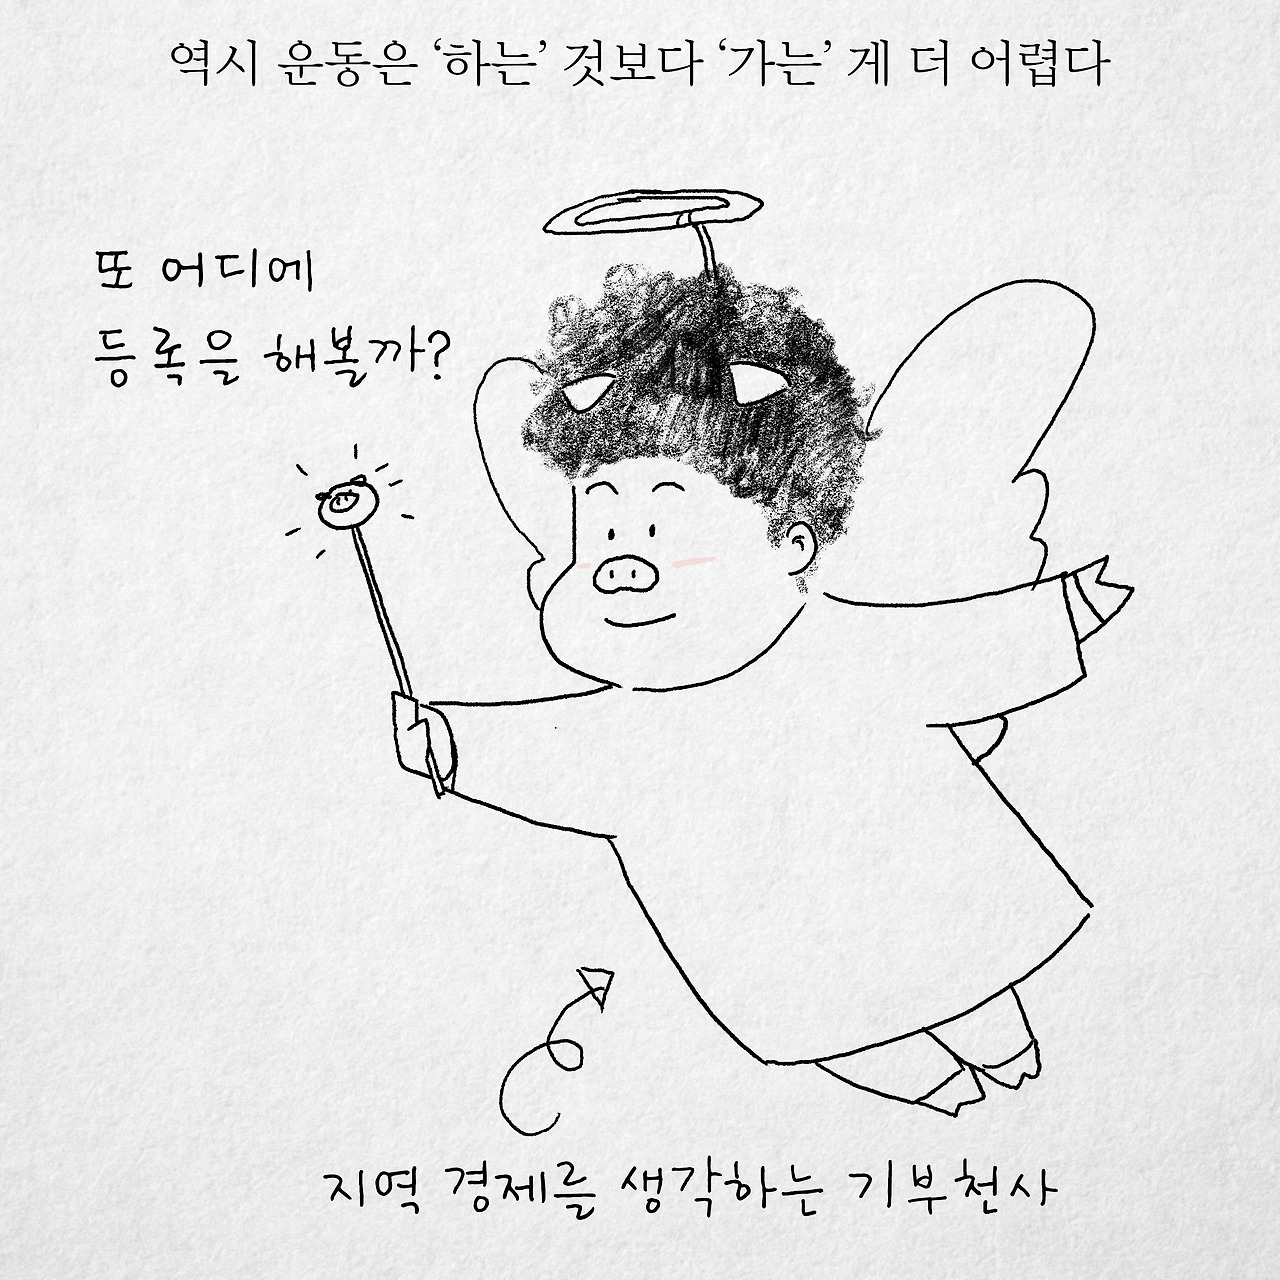 역시 운동은 ‘하는’ 것보다 ‘가는’ 게 더 어렵다
또 어디에
등록을 해볼까?
지역 경제를 생각하는 기부천사